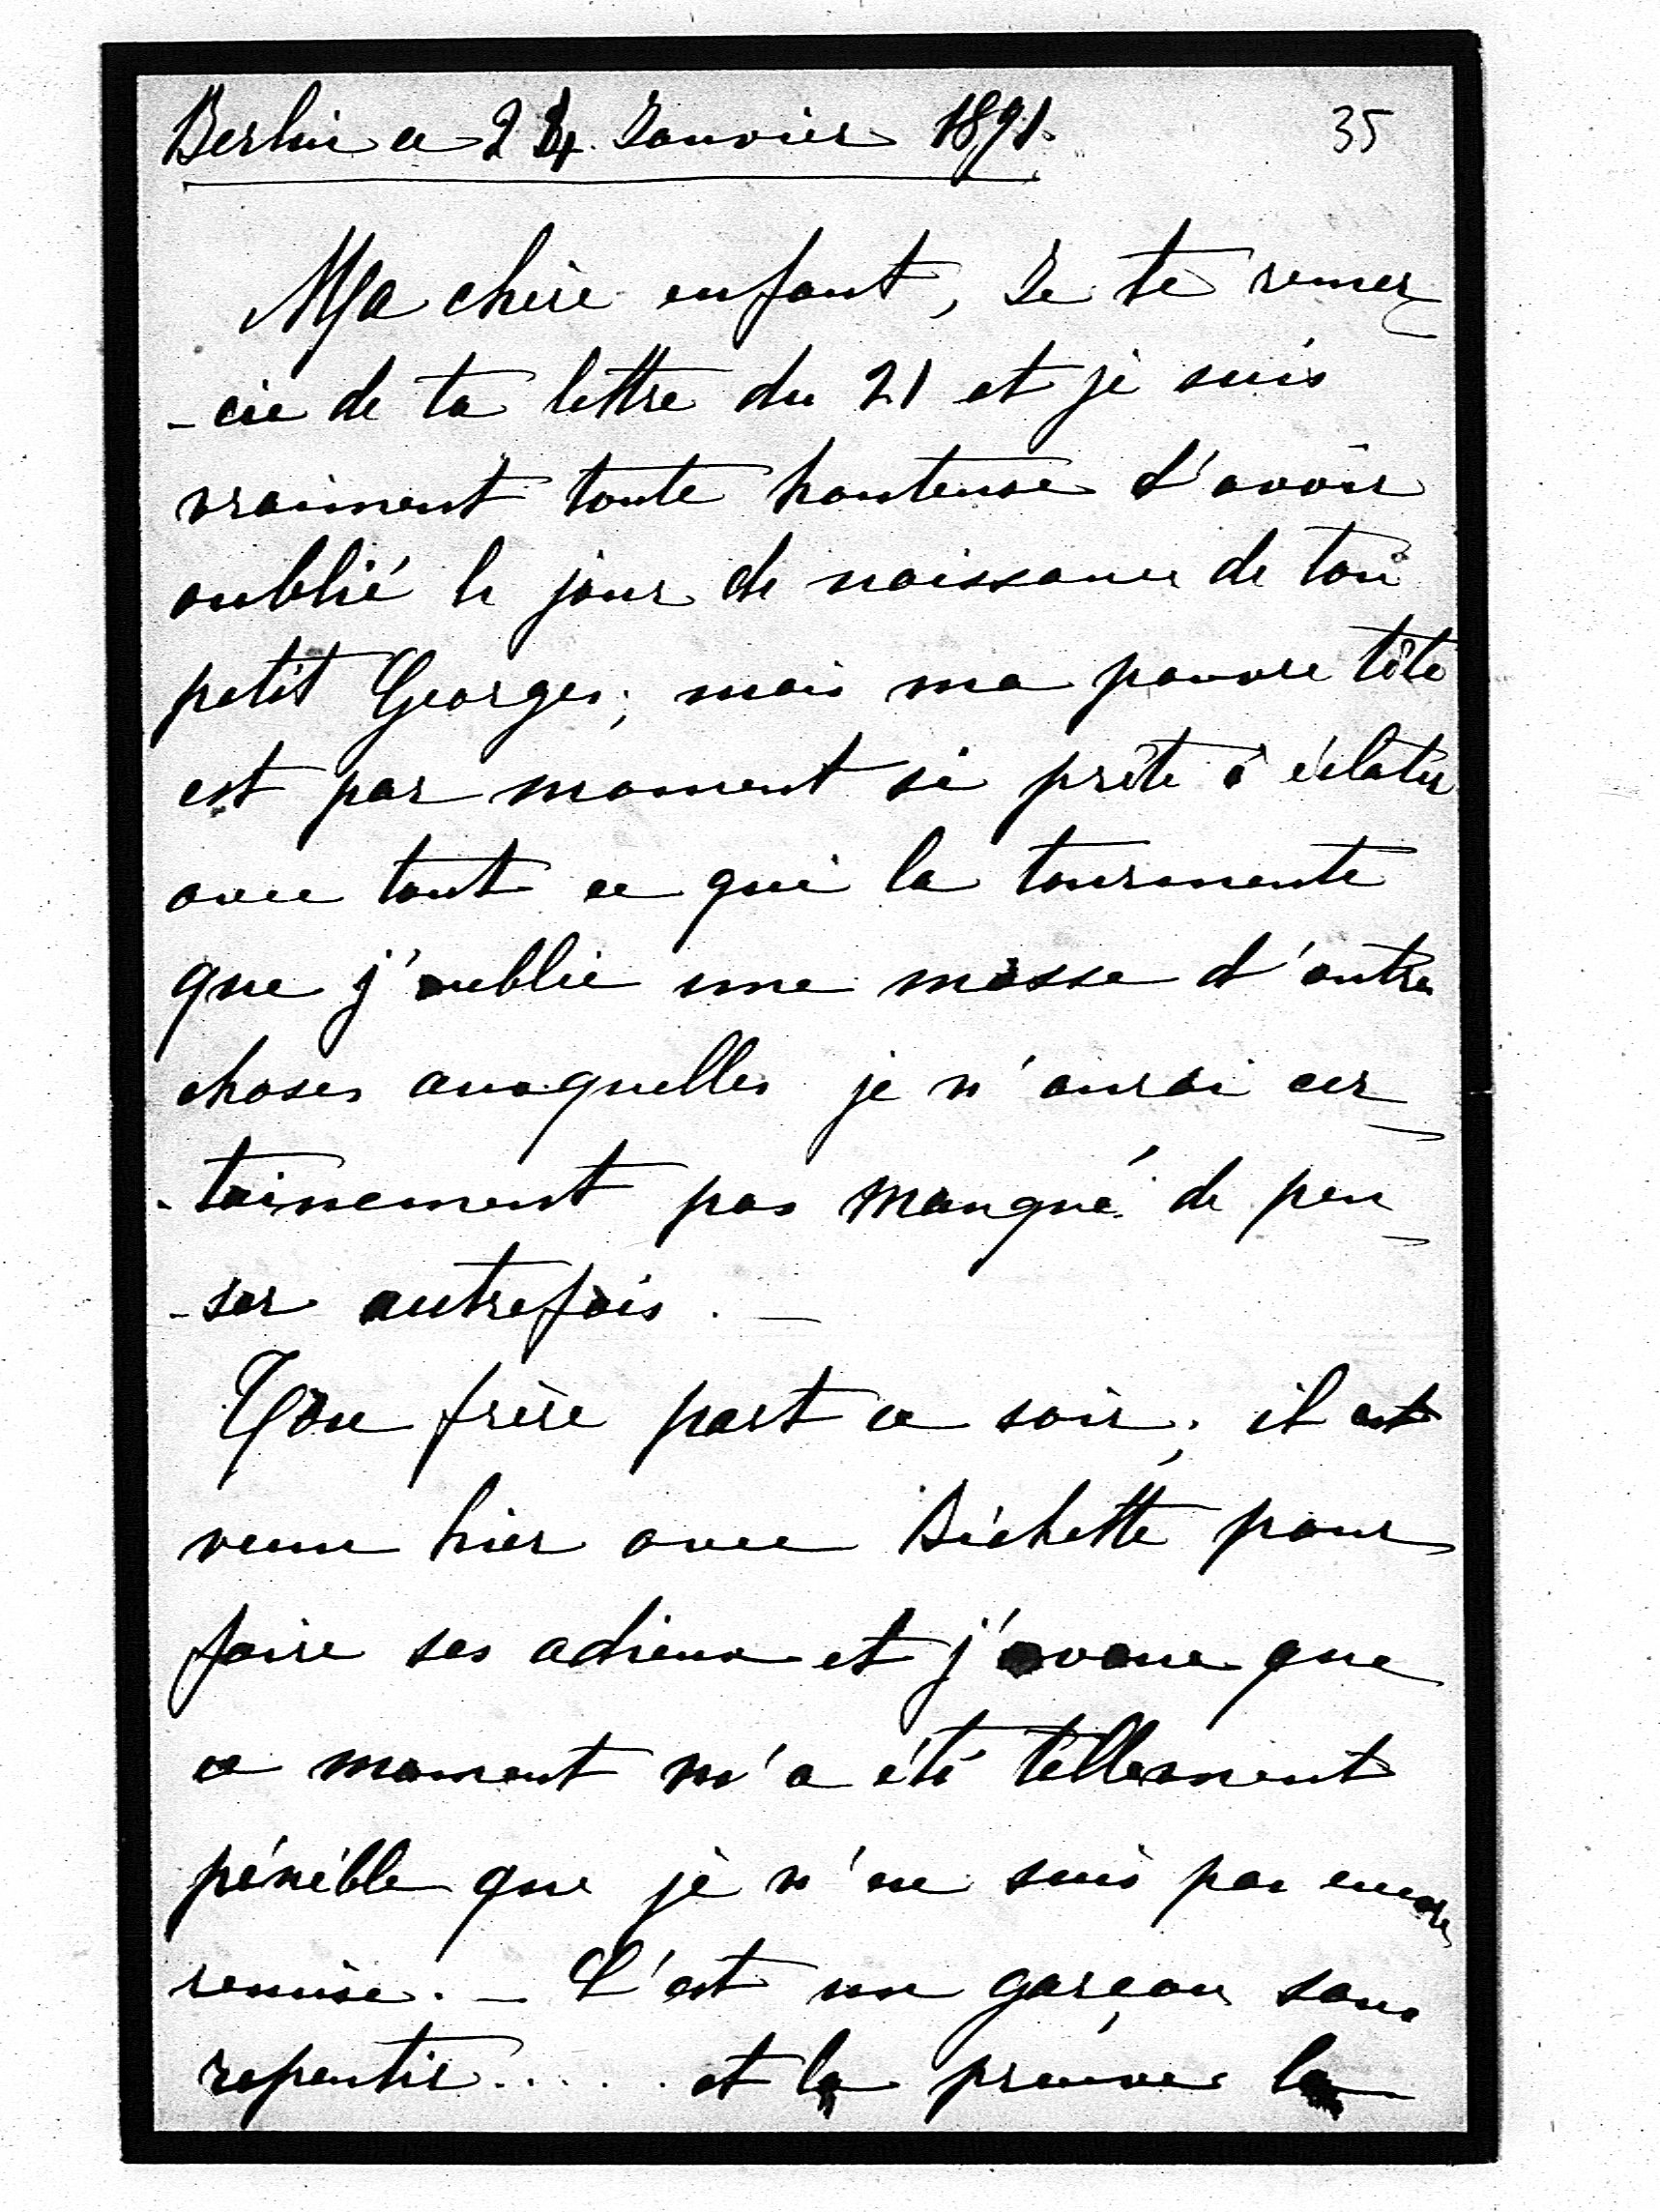 Berlin ce 24. Janvier 1891.
35
Ma chère enfant, Je te remer-
-cie de ta lettre du 21 et je suis
vraiment toute honteuse d'avoir
oublié le jour de naissance de ton
petit Georges; mais ma pauvre tête
est par moment si prête à éclater
avec tout ce qui la tourmente
que j'oublie une masse d'autres
choses auxquelles je n'aurai cer-
-tainement pas manqué de pen-
-ser autrefois. -
Ton frère part ce soir; il est
venu hier avec Bichette pour
faire ses adieux et j'avoue que
ce moment m'a été tellement
pénible que je n'en suis pas encore
remise. - C'est un garçon sans
repentir..... et la preuve la